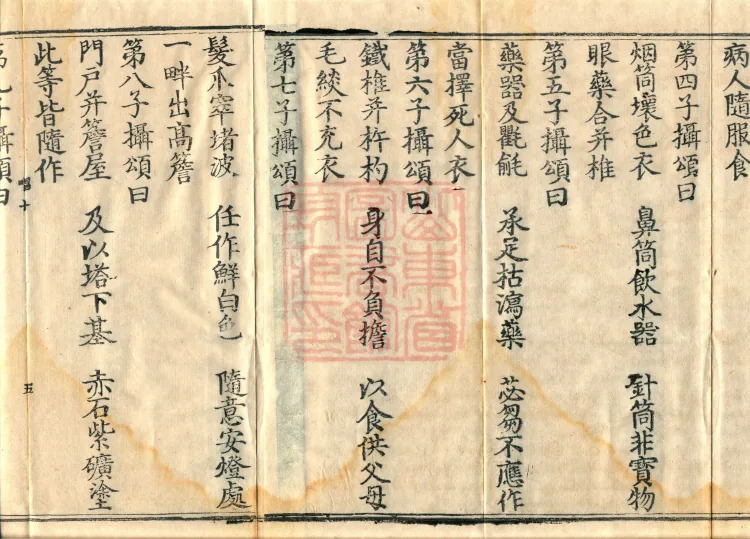 病人隨服食
第四子攝頌曰
烟筒壞色衣　鼻筒飲水器　針筒非寶物
眼藥合并椎
第五子攝頌曰
藥器及氍毹　承足枯瀉藥　苾芻不應作
當擇死人衣
第六子攝頌曰
鐵椎并杵杓　身自不負擔　以食供父母
毛緂不充衣
第七子攝頌曰
髮爪窣堵波　任作鮮白色　隨意安燈處
一畔出高簷
第八子攝頌曰
門戶并簷屋　及以塔下基　赤石紫礦塗
此等皆隨作
五
第九子攝頌曰